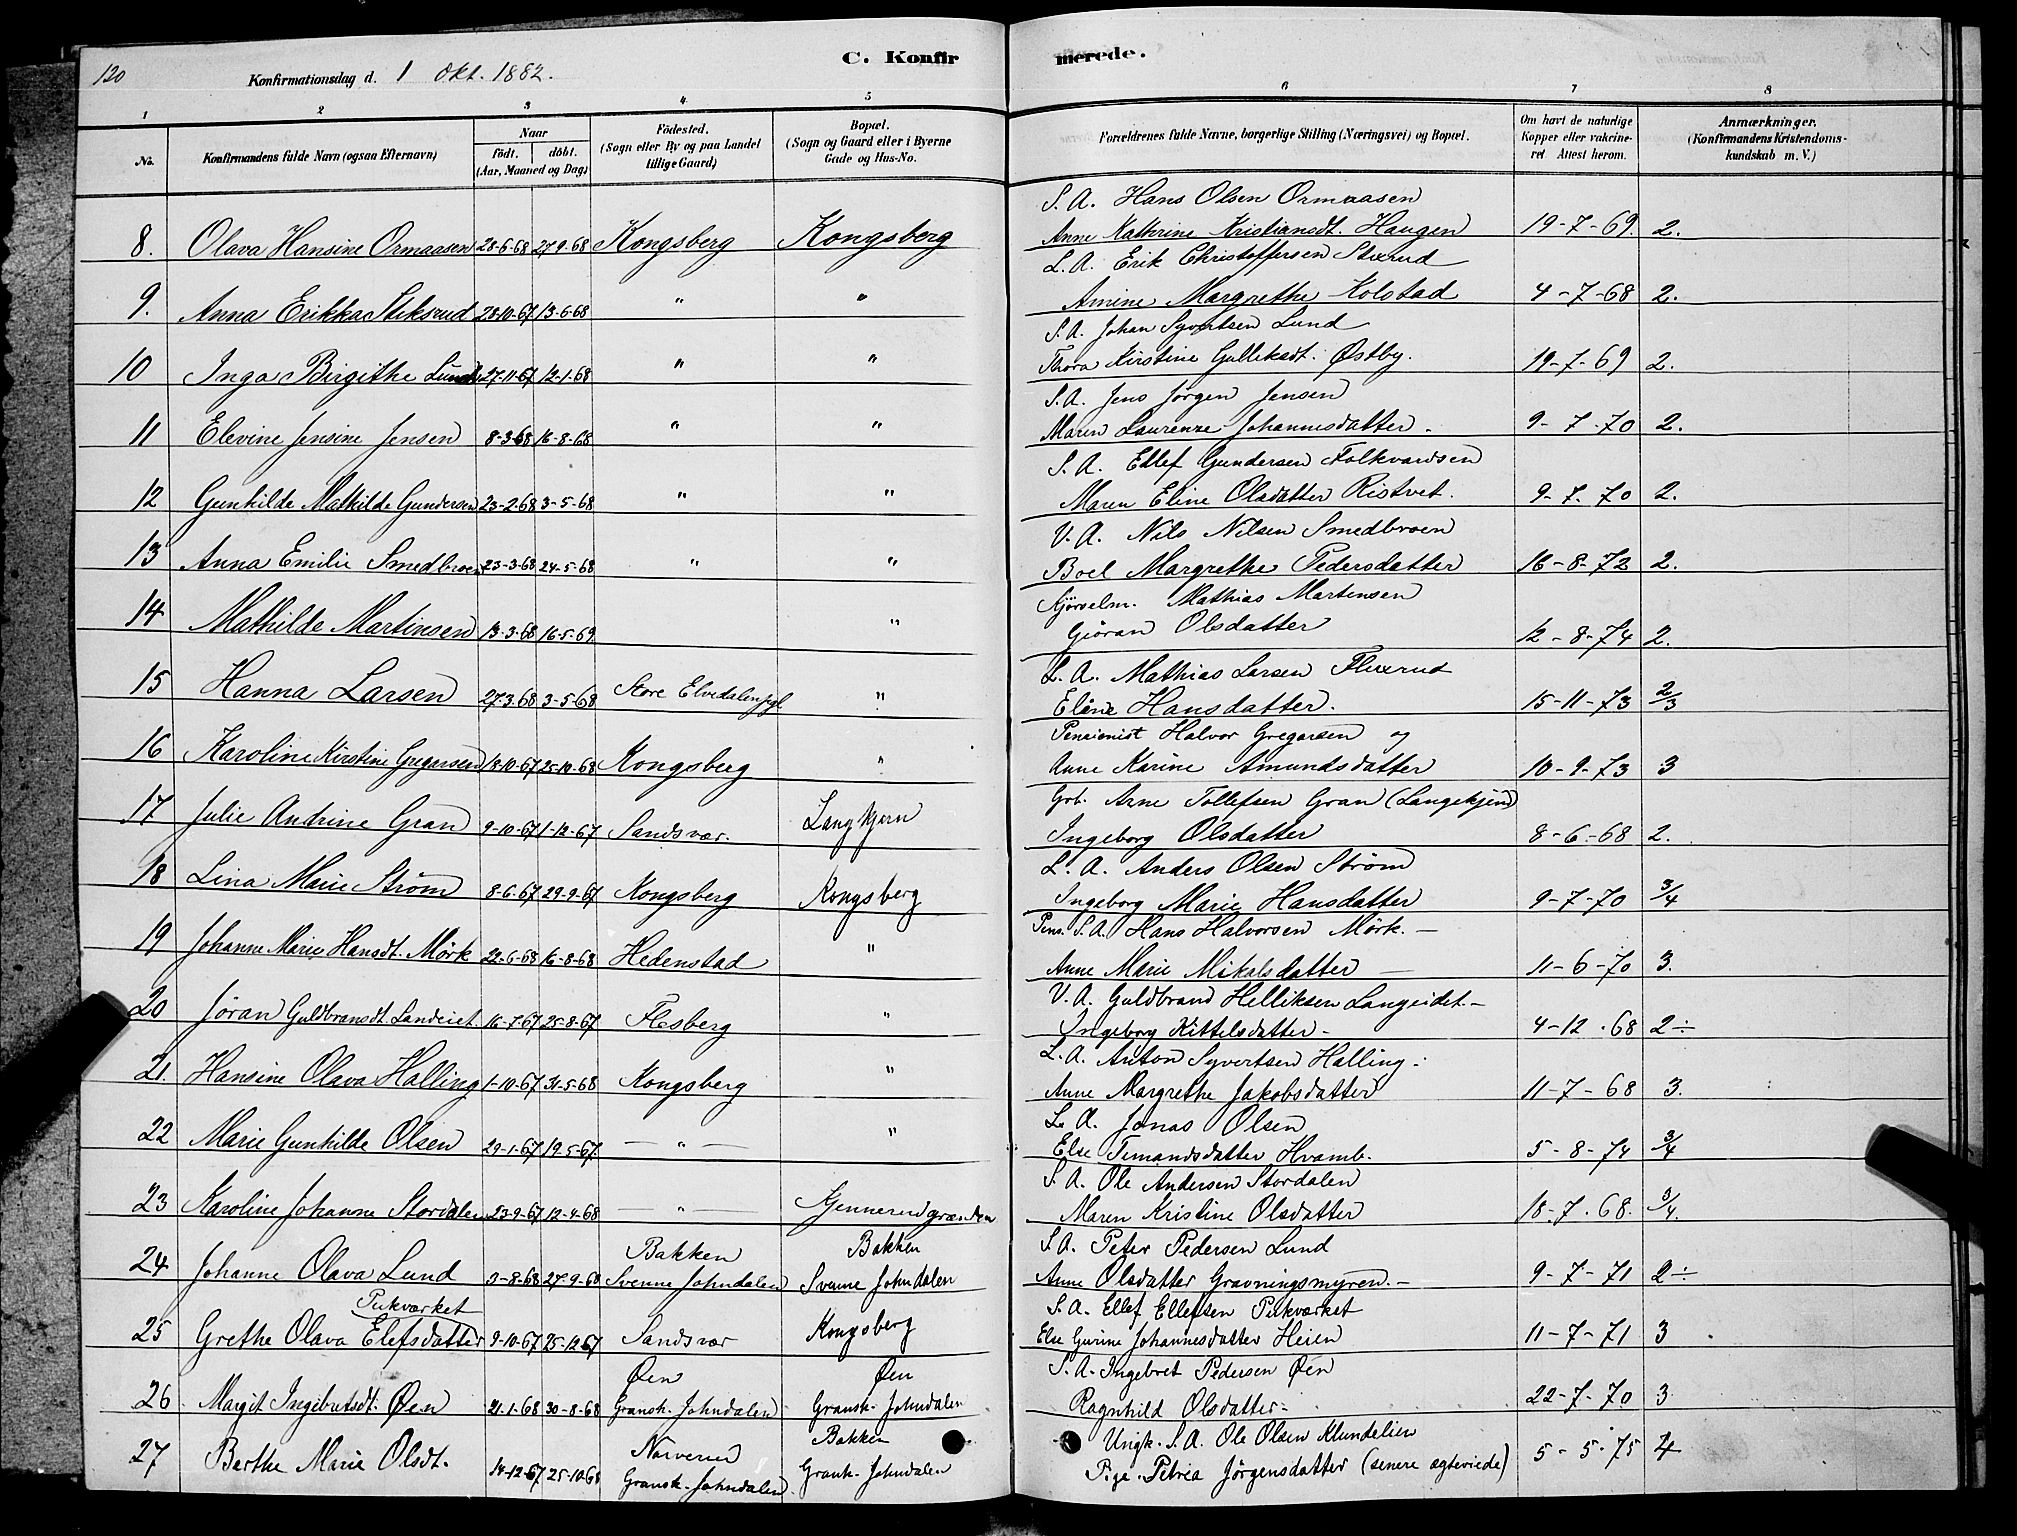 120
Konfirmationsdag d. 1 Okt. 1882.
C. Konfir merede.
1 2 3 4 5 6 7 8
No. Konfirmandens fulde Navn (ogsaa Efternavn) Naar födt. döbt. (Aar, Maaned og Dag) Födested. (Sogn eller By og paa Landet tillige Gaard) Bopæl. (Sogn og Gaard eller i Byerne Gade og Hus-No. Forældrenes fulde Navne, borgerlige Stilling (Næringsvei) og Bopæl. Om havt de naturlige Kopper eller vakcineret Attest herom. Anmærkninger. (Konfirmandens Kristendomskundskab m. V.)
S. A. Hans Olsen Ormaasen
8. Olava Hansine Ormaasen 28-6-68 27-9-68 Kongsberg Kongsberg Anne Kathrine Kristiansdt. Haugen 19-7-69. 2.
L. A. Erik Christoffersen Stixrud
9. Anna Erikka Stiksrud 28-10-67 13-6-68 " " Amine Margrethe Kolstad 4-7-68 2.
S. A. Johan Syvertsen Lund
10 Inga Birgithe Lund 27-11-67 12-1-68 " " Thora Kirstine Gulleksdt. Østby. 19-7-69 2.
S. A. Jens Jörgen Jensen
11 Elevine Jensine Jensen 8-3-68 16-8-68 " " Maren Laurenze Johannesdatter - 9-7-70 2.
S. A. Ellef Gundersen Folkvardsen
12 Gunhilde Mathilde Gundersen 23-2-68 3-5-68 " " Maren Eline Olsdatter Ristvet. 9-7-70 2.
V. A. Nils Nilsen Smedbroen
13 Anna Emilie Smedbroen 23-3-68 24-5-68 " " Boel Margrethe Pedersdatter 16-8-72 2.
Kjörselm. Mathias Martensen
14 Mathilde Martinsen 13-3-68 16-5-69 " Giöran Olsdatter 12-8-74 2.
L. A. Mathias Larsen Fluxrud
15 Hanna Larsen 27-3-68 3-5-68 Store Elvedalen pgl. " Eline Hansdatter. 15-11-73 2/3
Pensionist Halvor Gregarsen og
16 Karoline Kirstine Gregarsen 18-10-67 25-10-68 Kongsberg " Anne Karine Amundsdatter 10-9-73 3
Grb. Arne Tollefsen Gran (Langekjend)
17 Julie Andrine Gran 9-10-67 1-12-67 Sandsvær. Langkjern Ingeborg Olsdatter 8-6-68 2.
L. A. Anders Olsen Strøm
18 Lina Marie Strøm 8-6-67 29-9-67 Kongsberg Kongsberg Ingeborg Marie Hansdatter 9-7-70 3/4
Pens. S. A. Hans Halvorsen Mörk. -
19 Johanne Marie Hansdt. Mørk 22-6-68 16-8-68 Hedenstad " Anne Marie Mikalsdatter - 11-6-70 3.
V. A. Guldbrand Helliksen Langeidet -
20 Jöran Guldbransdt. Landeiet 16-7-67 25-8-67 Flesberg " Ingeborg Kittelsdatter - 4-12-68 2÷
L. A. Anton Syvertsen Halling.
21. Hansine Olava Halling 1-10-67 31-5-68 Kongsberg " Anne Margrethe Jakobsdatter 11-7-68 3.
L. A. Jonas Olsen
22 Marie Gunhilde Olsen 29-1-67 19-5-67 - " - " Else Temandsdatter Hvamb. 5-8-74 3/4
S. A. Ole Andersen Stordalen
23 Karoline Johanne Stordalen 23-9-67 12-4-68 - " - Kjennerudgrænden Maren Kristine Olsdatter 18-7-68. 3/4.
Bakken Bakken S. A. Peter Pedersen Lund
24 Johanne Olava Lund 9-8-68 27-9-68 Svenne Johndalen Svenne Johndalen Anne Olsdatter Gravningsmyren. - 9-7-71 2÷
Pukværket S. A. Ellef Ellefsen Pukværket
25 Grethe Olava Elefsdatter 9-10-67 25-12-67 Sandsvær Kongsberg Else Gurine Johannesdatter Heien 11-7-71 3
Øen Øen S. A. Ingebret Pedersen Øen
26 Margit Ingebretsdt. Øen 21-1-68 30-8-68 Gransh. Johndalen Gransh. Johndalen Ragnhild Olsdatter - 22-7-70 3
Bakken Ungk. S. A. Ole Olsen Klundelien
27 Berthe Marie Olsdt. 14-12-67 25-10-68 Gransh. Johndalen Gransh. Johndalen Pige Petrea Jörgensdatter (senere ægteviede) 5-5-75 4